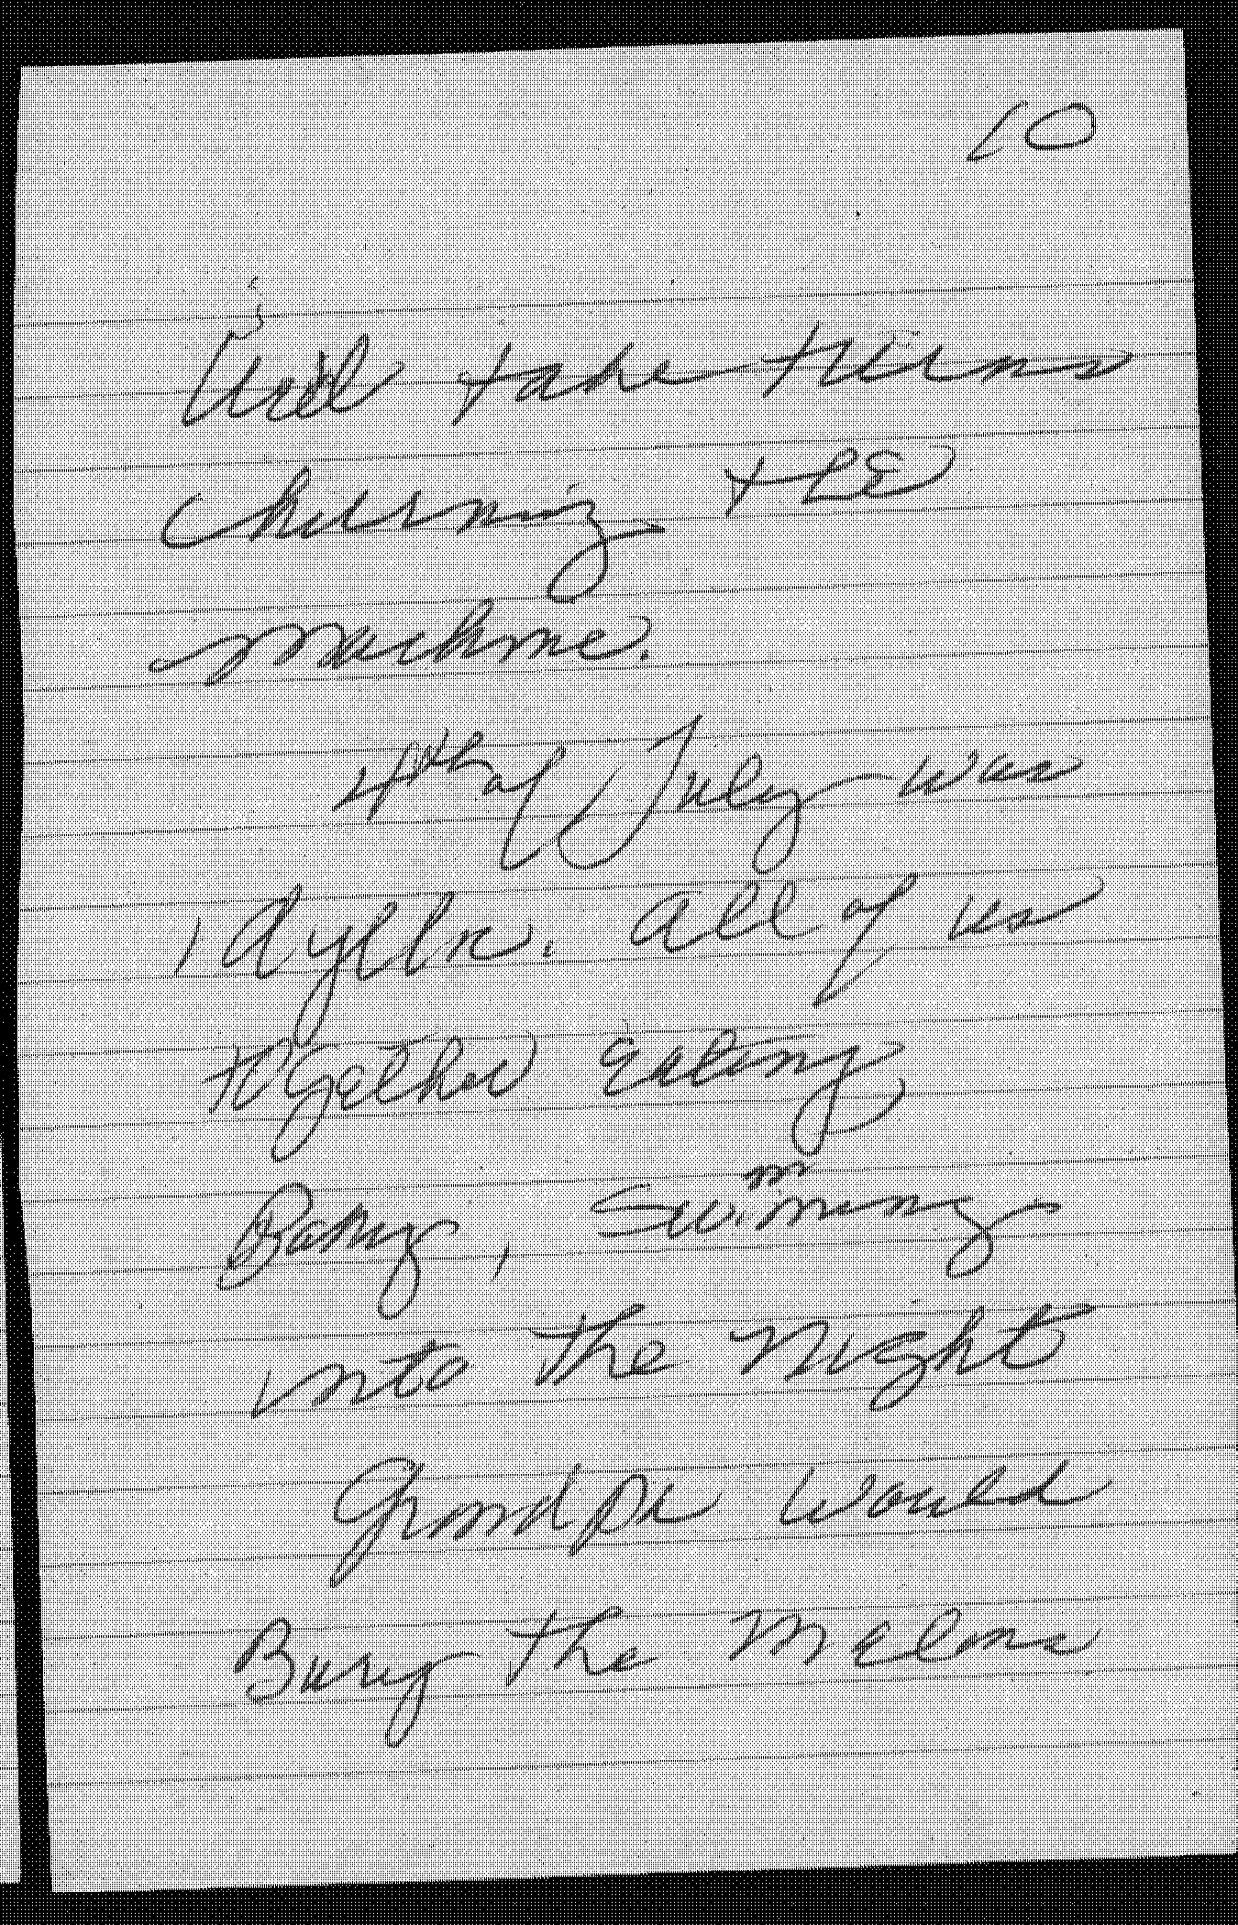 10
We'd take turns
churning the
machine.
4th of July was
idyllic. All of us
together eating
swimming
into the night
Grandpa would
Bury the melons